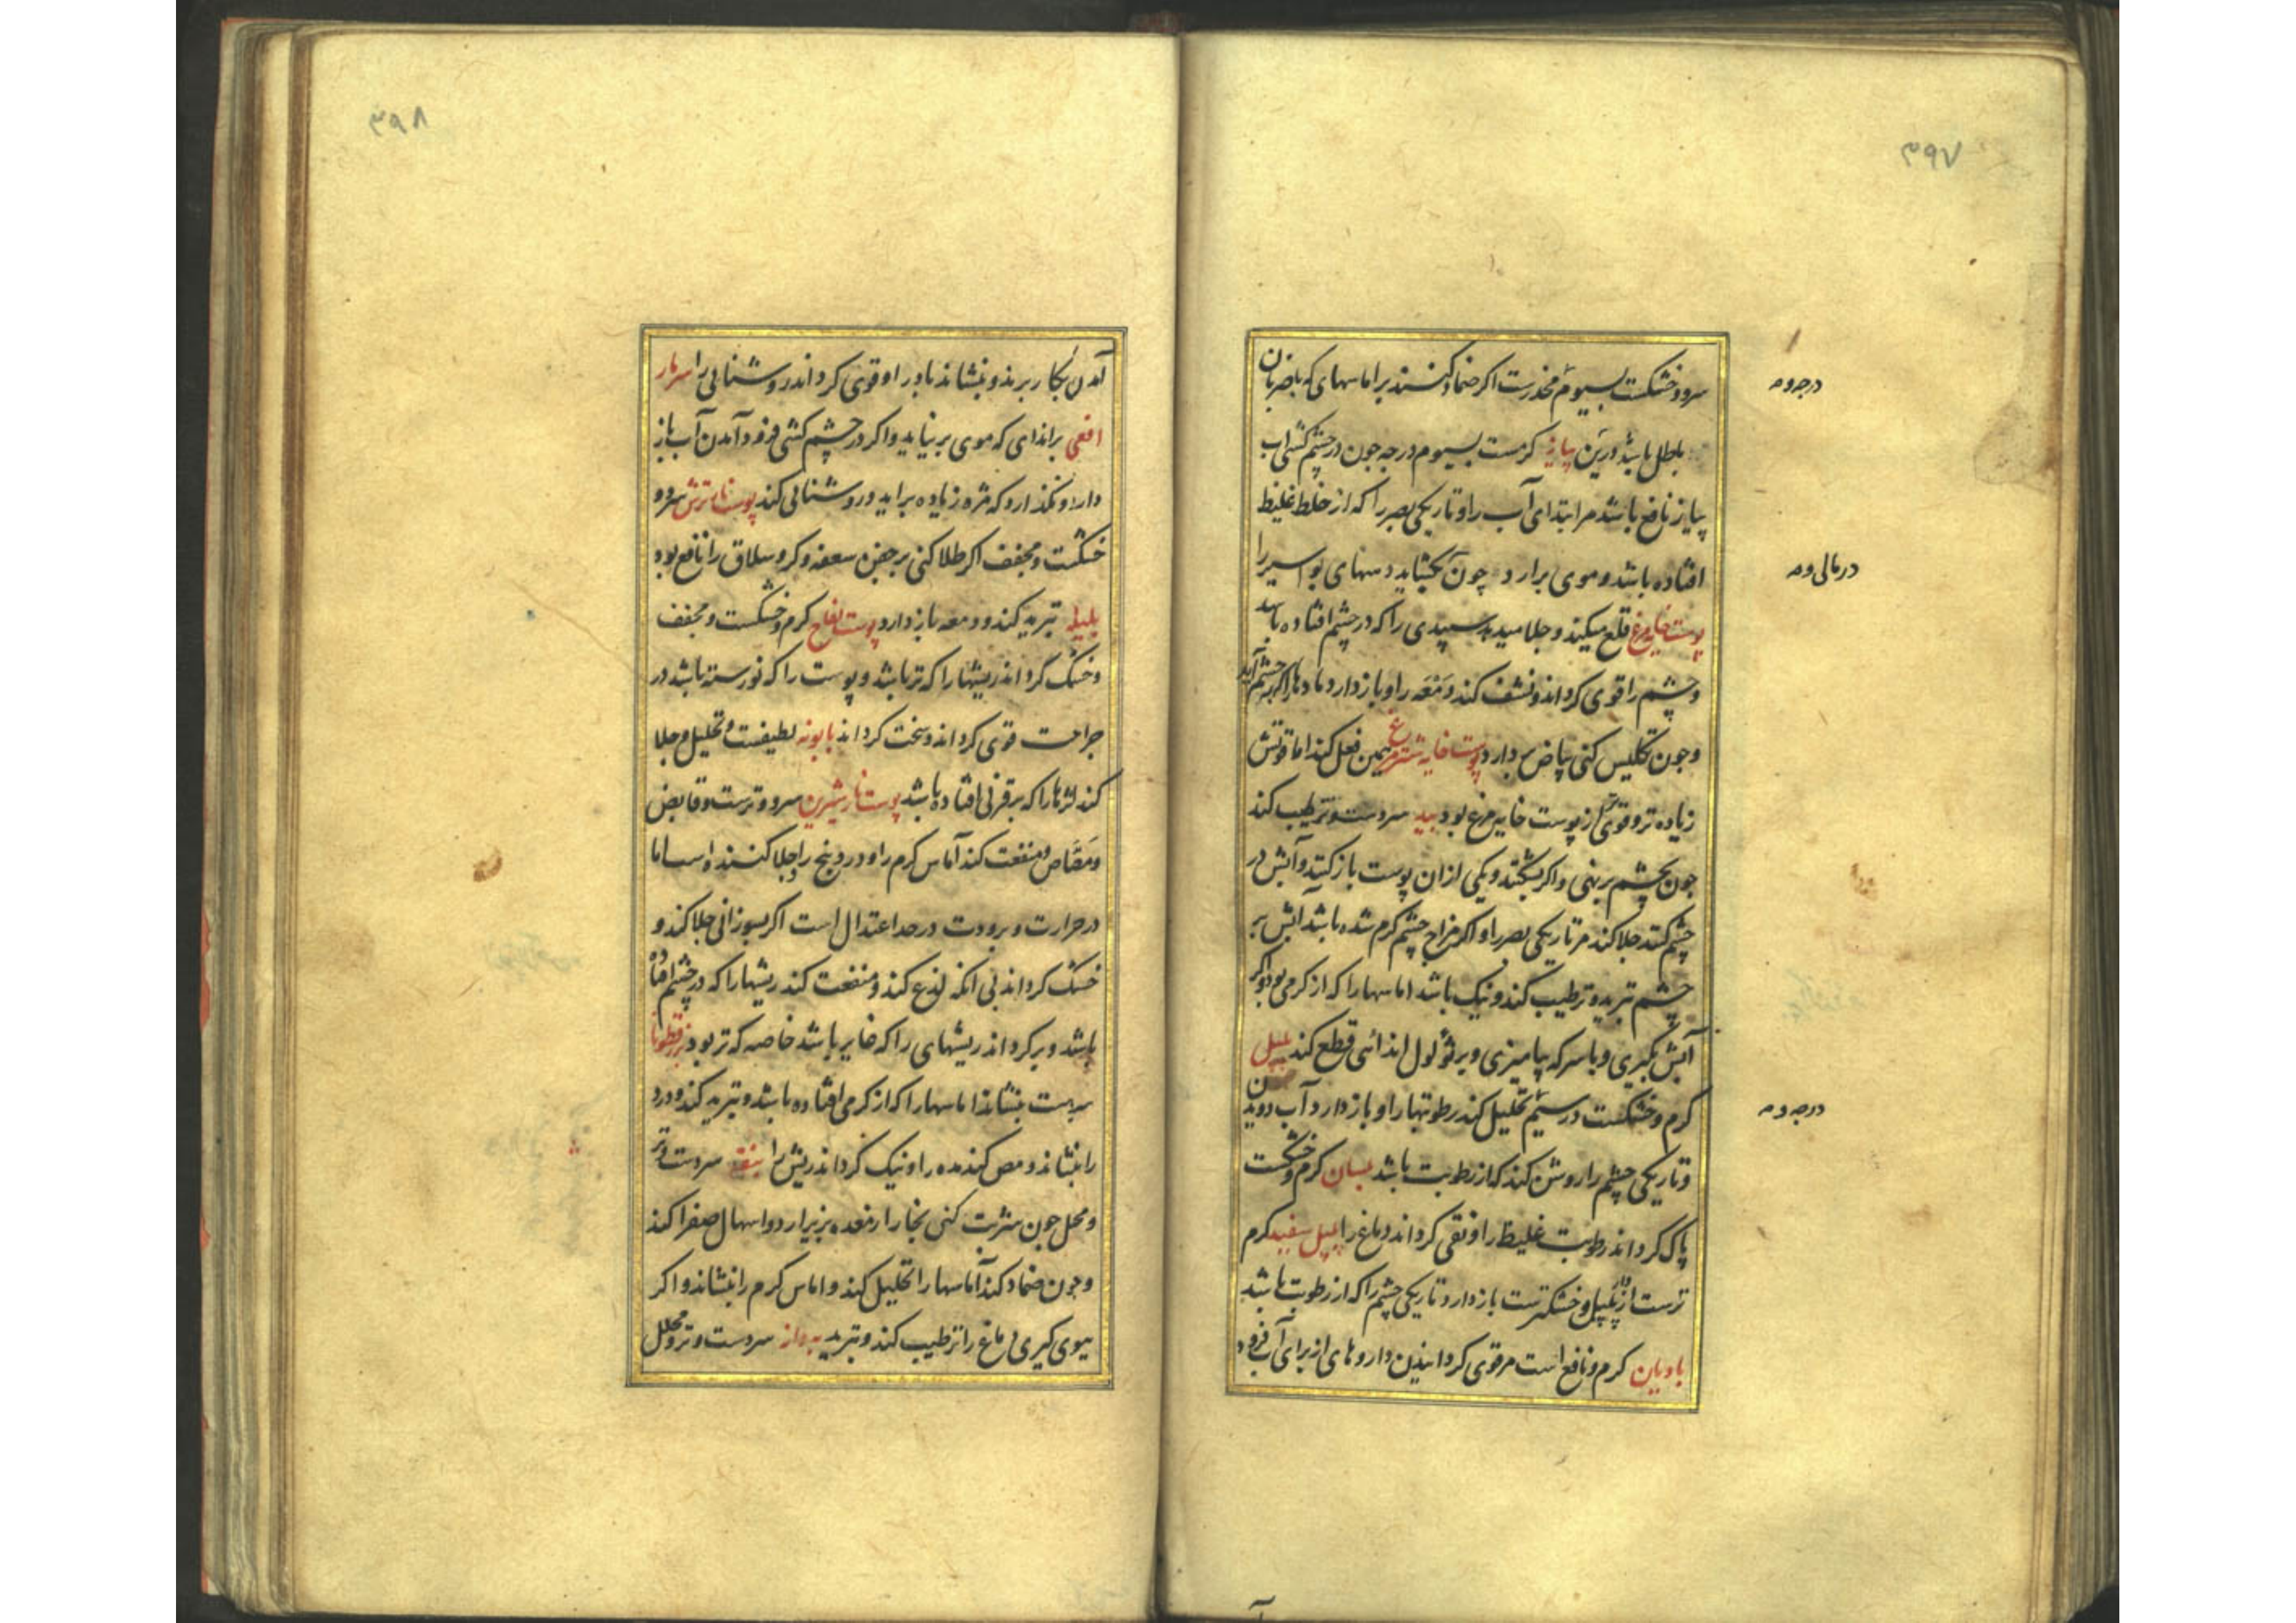 ۳۹۷
سرد و خشکست بسیوم مخدرست اکر ضماد کنند بر اماسهای که با ضربان
درجه دوم
باطل باشد ورین پیاز کرمست بسیوم درجه جون در چشم کشی اب
پیاز نافع باشد مر ابتدای آب را و تاریکی بصر را که از خلط غلیظ
افتاده باشد و موی برارد چون بکشاید دمهای بواسیر را
پوست خایه مرغ قلع میکند و جلا میدهد سپیدی را که در چشم افتاده باشد
و چشم را قوی کرداند و نشف کند دمعه را و باز دارد مادها را که به چشم آید
وجون تکلیس کنی بیاض بردارد پوست خایه شترمرغ همین فعل کند اما قوتش
زیاده تر و قوی تر از پوست خایه مرغ بود بید سردست و ترطیب کند
جون بچشم برنهی و اکر بشکنند ویکی ازان پوست باز کنند و آبش در
چشم کنند جلا کند مر تاریکی بصر را و اکر مزاج چشم کرم شده باشد ابش بر
چشم تبرید و ترطیب کند و نیک باشد اماسها را که از کرمی بود و اکر
آبش بکیری و با سرکه بیامیزی و بر ثولول اندائی قطع کند پلپل
کرم و خشکست در سیم تحلیل کند رطوبتها را و باز دارد آب دویدن
درجه دوم
و تاریکی چشم را روشن کند که از رطوبت باشد بلسان کرم و خشکست
پاک کرداند رطوبت غلیظ را و نقی کرداند دماغ را پلپل سفید کرم
ترست از پلپل و خشکترست باز دارد تاریکی چشم را که از رطوبت باشد
بادیان کرم و نافع است مر قوی کردانیدن داروهای از برای آب فرود
۳۹۸
آمدن بکار برند و بنشاند باد را و قوی کرداند روشنائی را سر مار
افعی براندای که موی برنیاید و اکر در چشم کشی فرود آمدن آب باز
دارد و نکذارد که مژه زیاده براید و روشنائی کند پوست نار ترش سرد و
خشکست و مجفف اکر طلا کنی بر جفن سعفه و کر و سلاق را نافع بود
بلیله تبرید کند و دمعه باز دارد پوست تفاح کرم و خشکست و مجفف
و خشک کرداند ریشها را که تر باشد و پوست را که نو رسته باشد در
جراحت قوی کرداند و سخت کرداند بابونه لطیفست و تحلیل و جلا
کند اثرها را که بر قرنی افتاده باشد پوست نار شیرین سرد و ترست و قابض
و مصاص و منفعت کند آماس کرم را و دردپنج را و جلا کنند و اسباما
در حرارت و برودت در حد اعتدال است اکر بسوزانی جلا کند و
خشک کرداند بی انکه لذع کند و منفعت کند ریشها را که در چشم افتاده
باشد و پر کرداند ریشهای را که غایر باشد خاصه که تر بود بزرقطونا
سردست بنشاند اماسها را که از کرمی افتاده باشد و تبرید کند و درد
را بنشاند و مص کننده را و نیک کرداند ریش را بنفشه سردست و تر
و محلل جون شربت کنی بخار را از معده بزیر ارد و اسهال صفرا کند
و جون ضماد کند آماسها را تحلیل کند و اماس کرم را بنشاند و اکر
ببوی کیری دماغ را ترطیب کند و تبرید به دانه سردست و تر و محلل